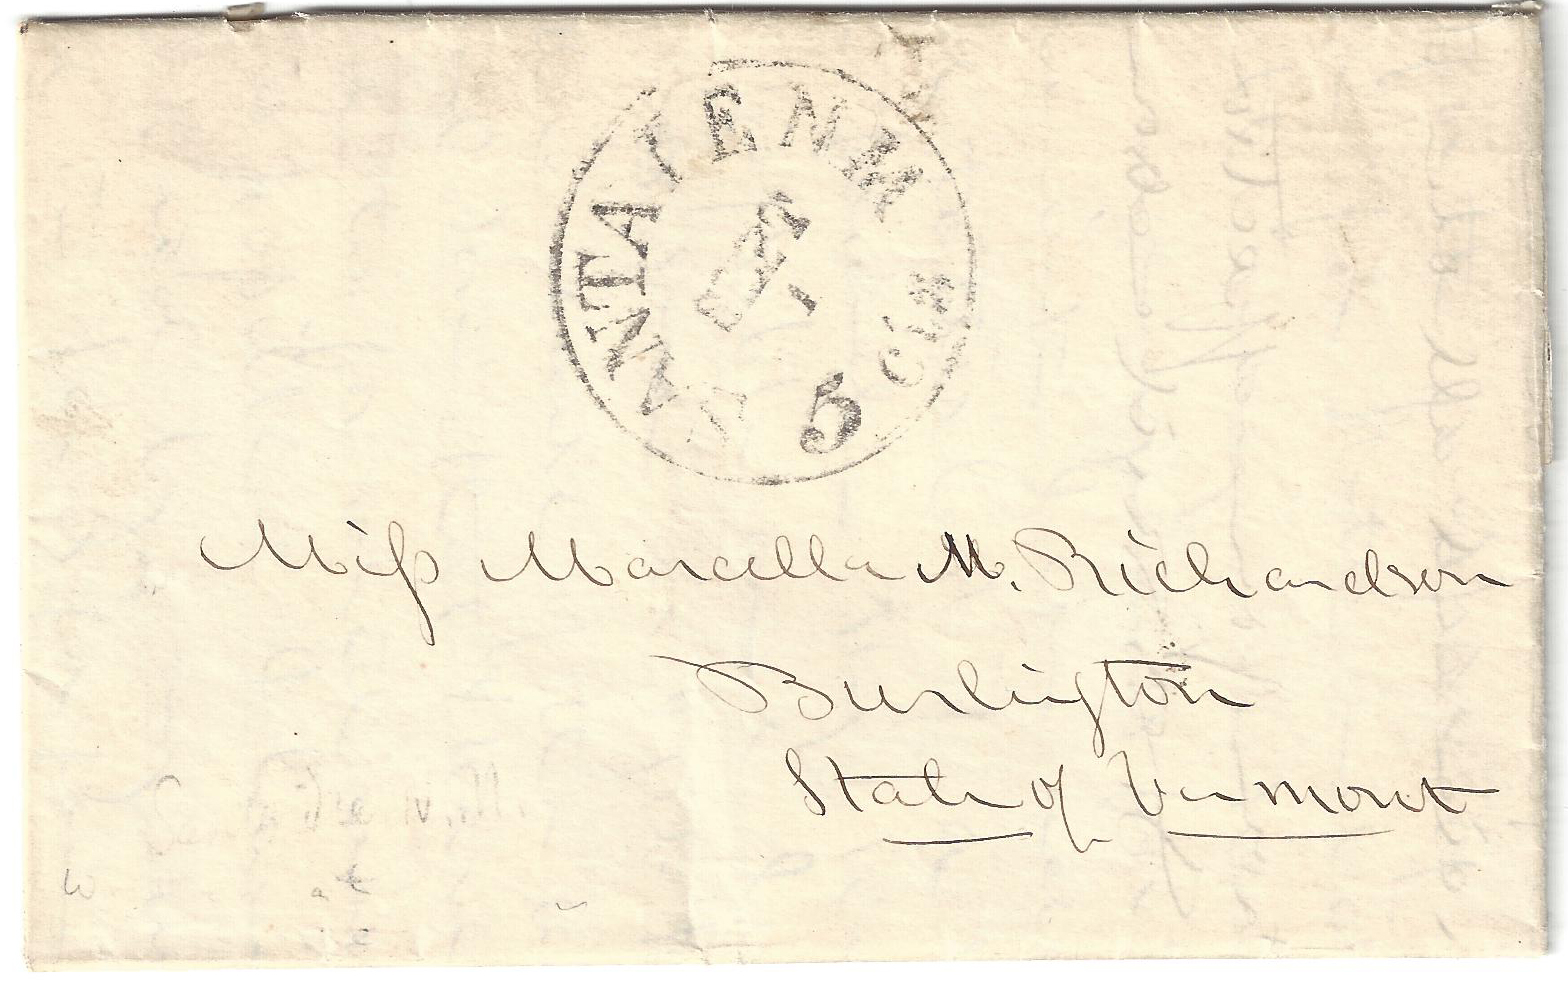 SANTA FE N M
1
5 Cts
Miſs Marcella M. Richardson
Burlington
State of Vermont